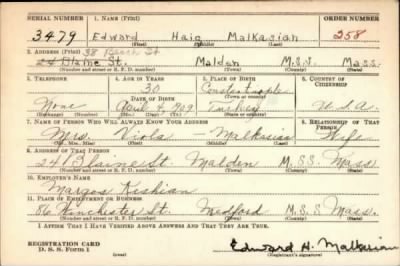 SERIAL NUMBER 1. NAME (Print) ORDER NUMBER
3479 Edward Haig Malkasian 258
(First) (Middle) (Last)
2. ADDRESS (Print) 38 Beach St
24 Blaine St. Malden M.S.S. Mass.
(Number and street or R. F. D. number) (Town) (County) (State)
3. TELEPHONE 4. AGE IN YEARS 5. PLACE OF BIRTH 6. COUNTRY OF CITIZENSHIP
30 Constantinople
DATE OF BIRTH (Town or county)
None 4, 1909 Turkey U.S.A.
(Exchange) (Number) (Mo.) (Day) (Yr.) (State or country)
7. NAME OF PERSON WHO WILL ALWAYS KNOW YOUR ADDRESS 8. RELATIONSHIP OF THAT PERSON
Mrs. Viola — Malkasian Wife
(Mr., Mrs., Miss) (First) (Middle) (Last)
9. ADDRESS OF THAT PERSON
24 Blaine St. Malden M.SS. Mass
(Number and street or R. F. D. number) (Town) (County) (State)
10. EMPLOYER'S NAME
Margos Keshian
11. PLACE OF EMPLOYMENT OR BUSINESS
86 Winchester St. Medford M.S.S Mass.
(Number and street or R. F. D. number) (Town) (County) (State)
I AFFIRM THAT I HAVE VERIFIED ABOVE ANSWERS AND THAT THEY ARE TRUE.
REGISTRATION CARD
D. S. S. Form 1 Edward H. Malkasian
(Registrant's signature)